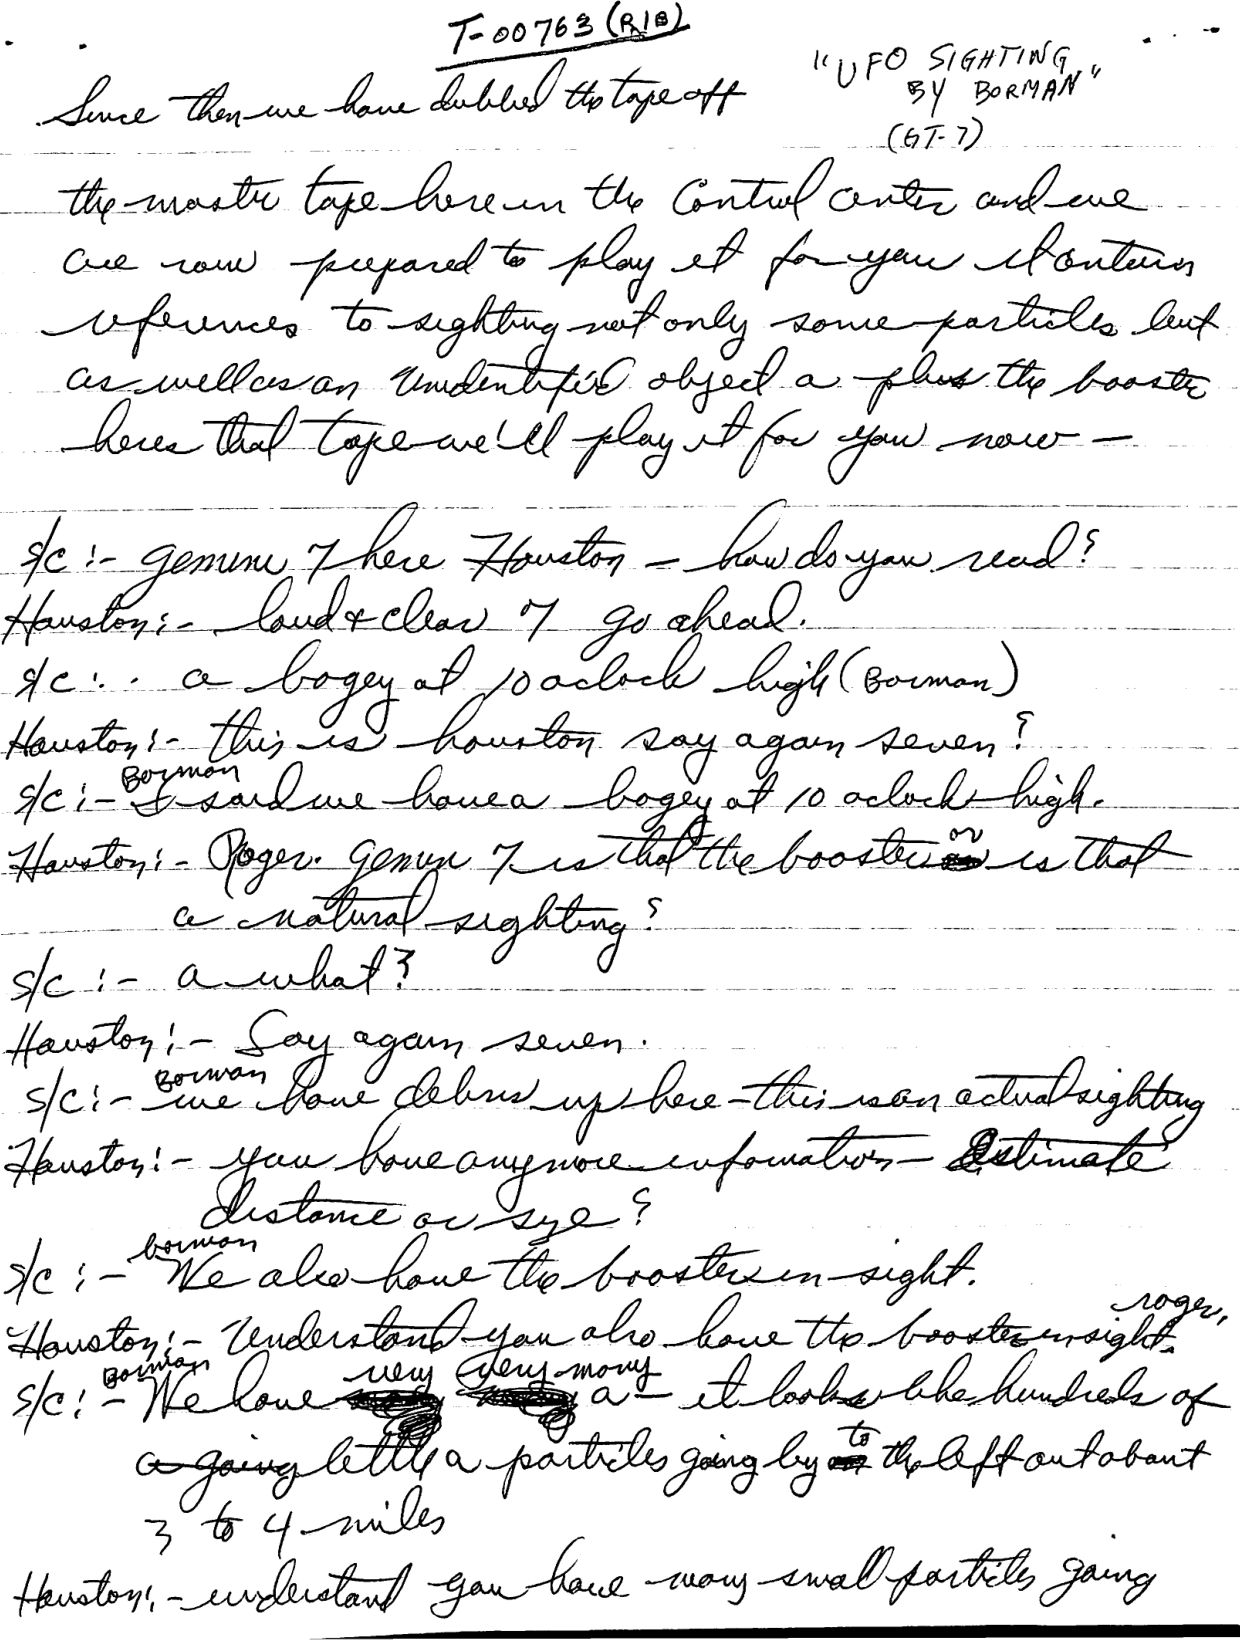 T-00763 (R1B)
"UFO SIGHTING
BY BORMAN"
(GT-7)
Since then we have dubbed the tape off
the master tape here in the Control Center and we
are now prepared to play it for you it contains
references to sighting not only some particles but
as well as an unidentified object a plus the booster
heres that tape we'll play it for you now —
S/C :- Gemini 7 here Houston — how do you read?
Houston :- loud & clear 7 go ahead.
S/C : . a bogey at 10 oclock high (Borman)
Houston :- this is houston say again seven?
Borman
S/C :- I said we have a bogey at 10 oclock high.
Houston :- Roger. Gemini 7 is that the booster or is that
a natural sighting?
S/C :- a what?
Houston :- Say again seven.
Borman
S/C :- we have debris up here — this is an actual sighting
Houston :- you have anymore information — Estimate
distance or size?
borman
S/C :- We also have the booster in sight.
Houston :- Understand you also have the booster in sight. roger,
Borman
S/C :- We have very very many a — it looks like hundreds of
a going little a particles going by to the left out about
3 to 4 miles
Houston :- understand you have many small particles going